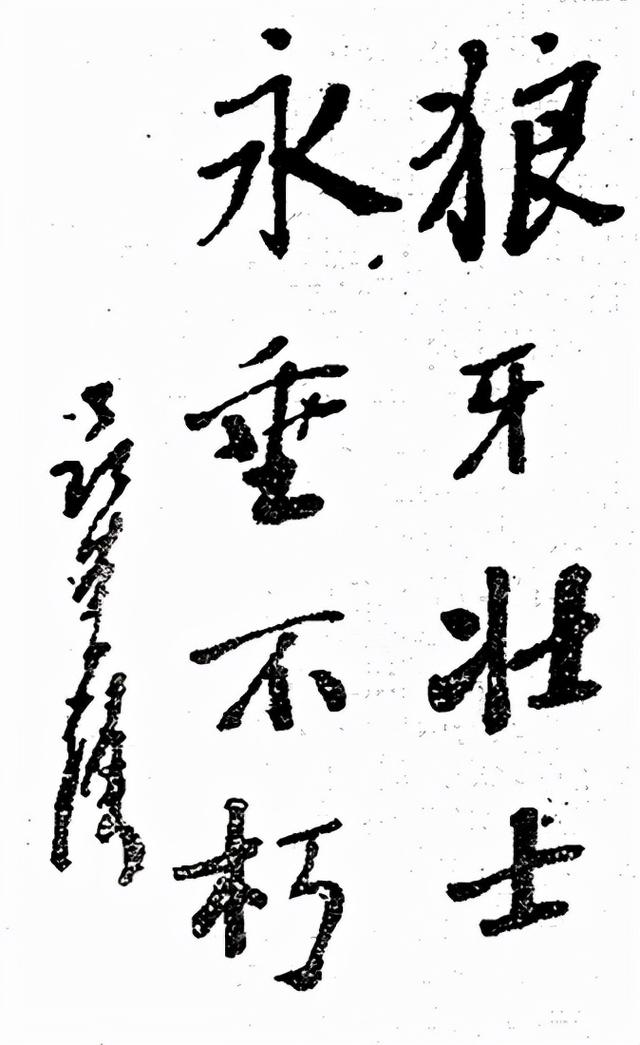 狼牙壮士
永垂不朽
聂荣臻